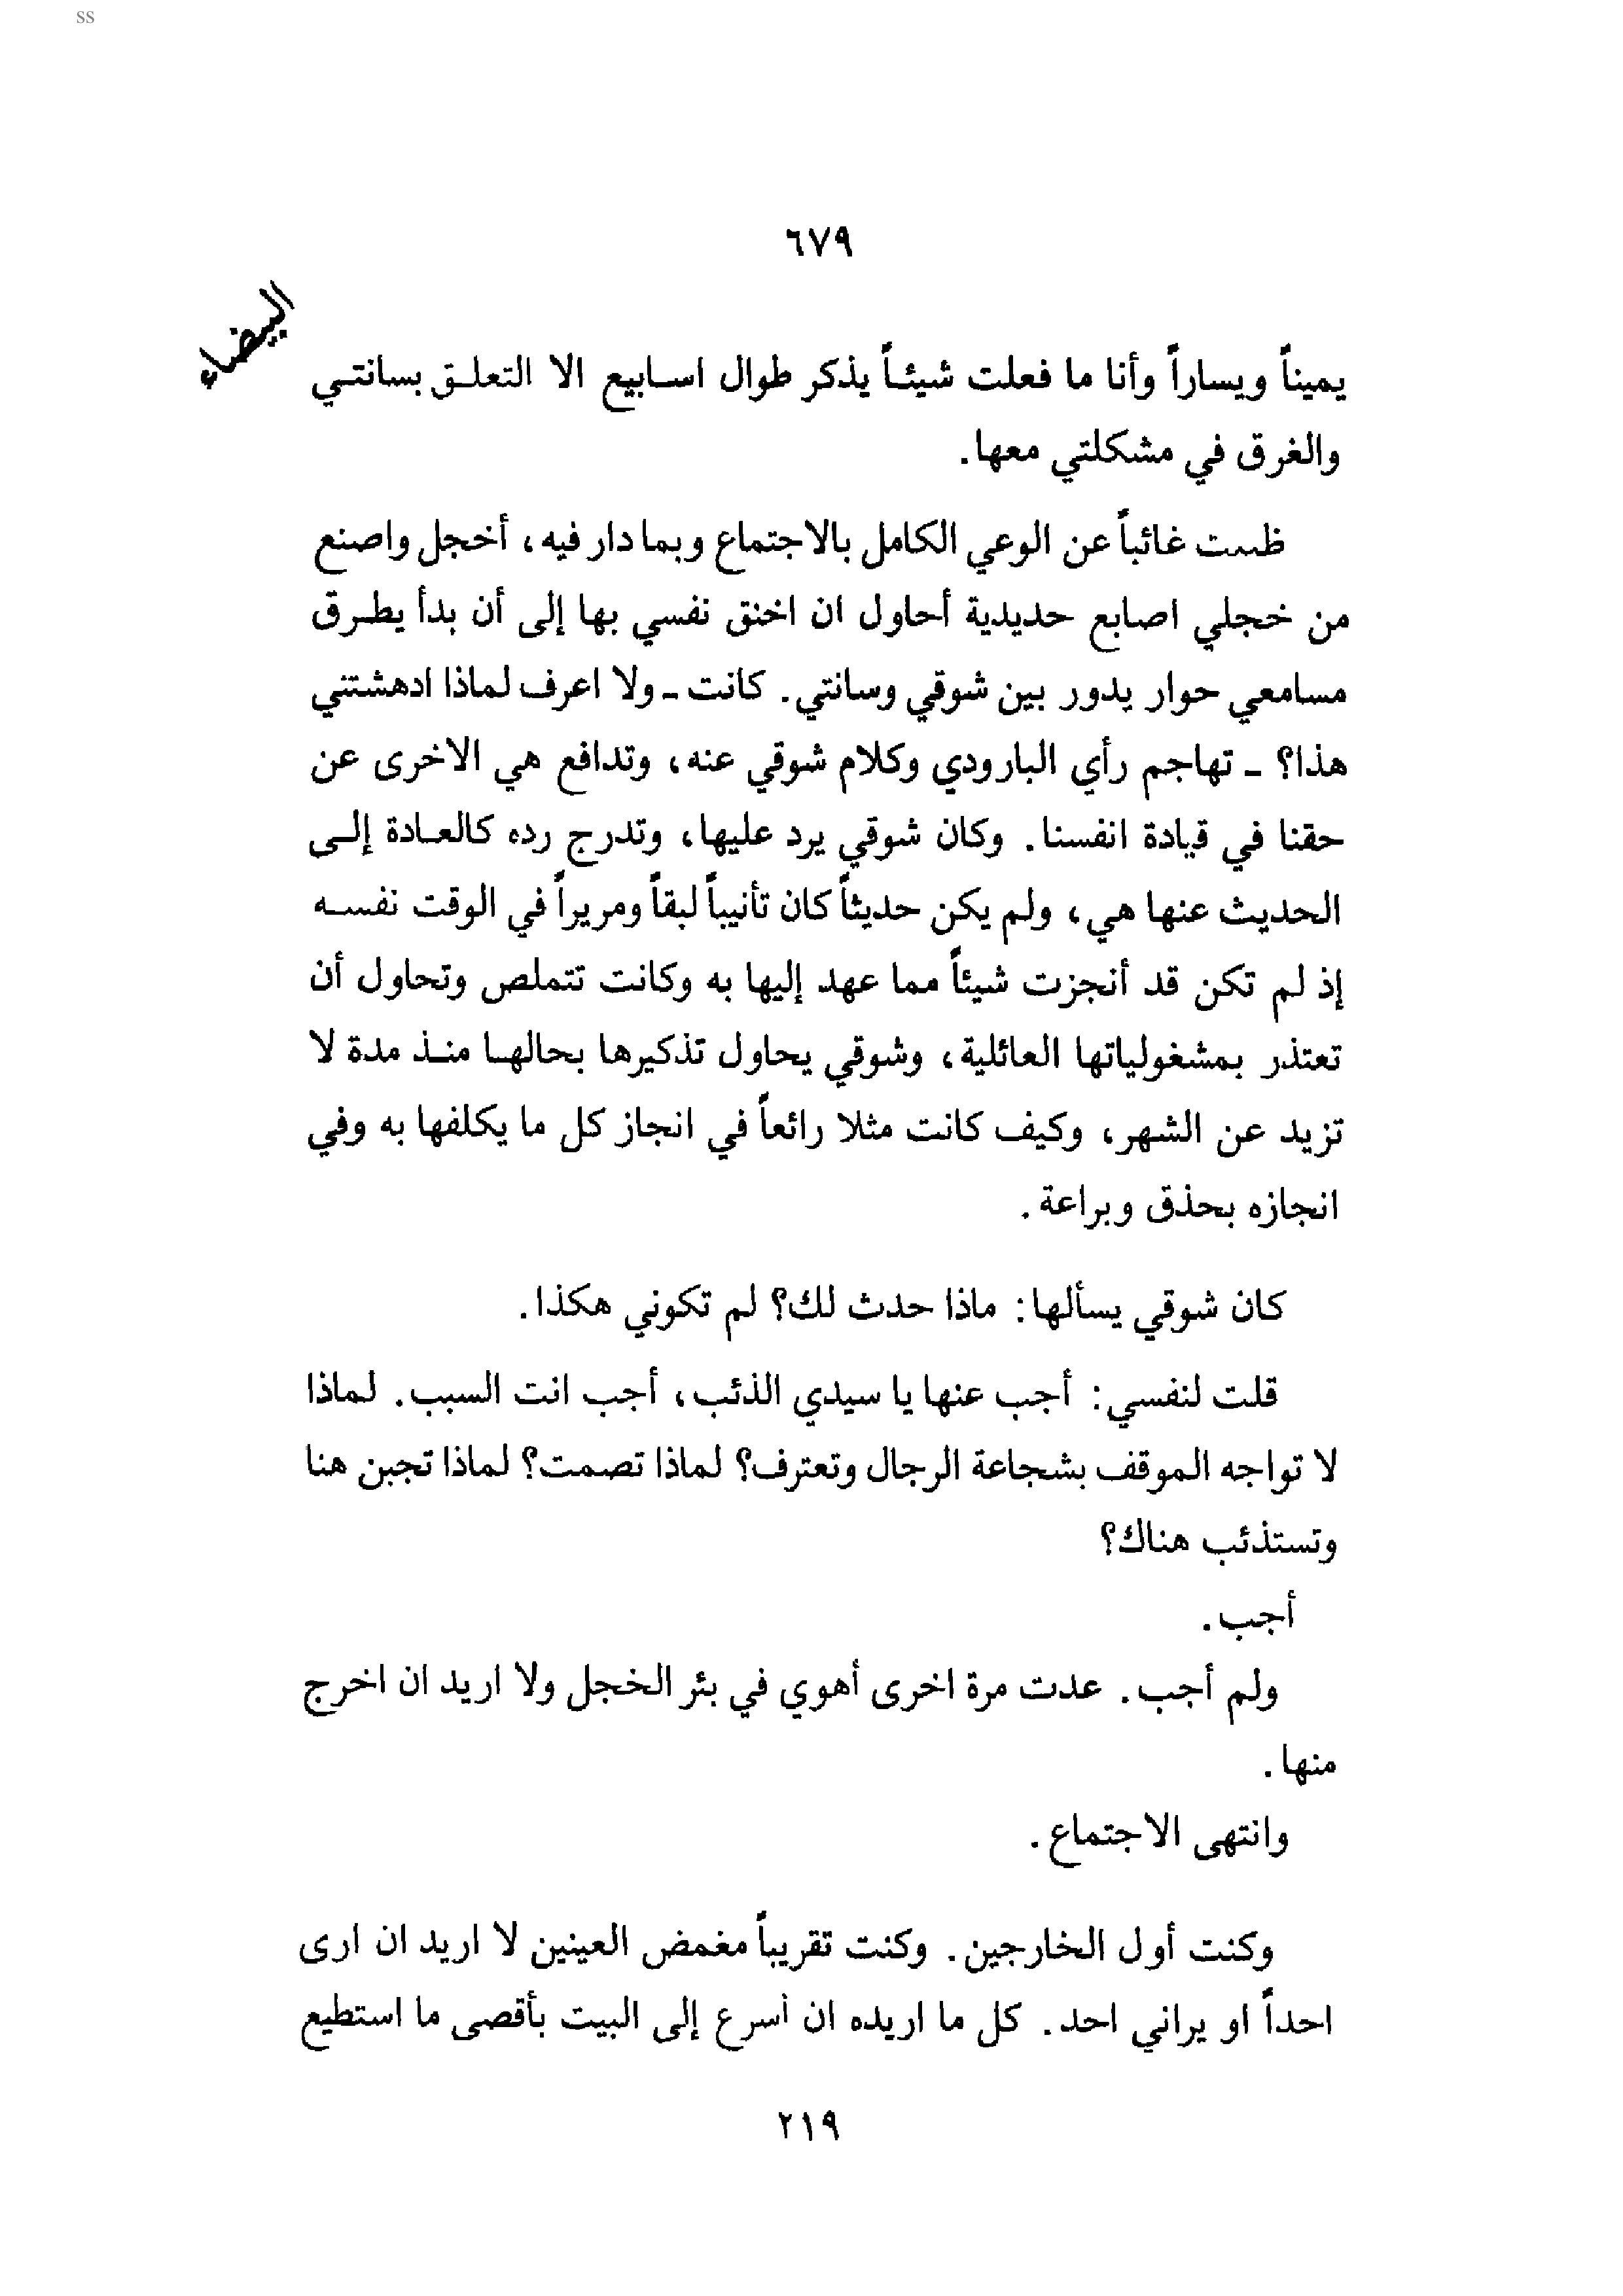 SS
٦٧٩
البيضاء
يميناً ويساراً وأنا ما فعلت شيئاً يذكر طوال اسابيع الا التعلق بسانتي
والغرق في مشكلتي معها.
غائباً عن الوعي الكامل بالاجتماع وبما دار فيه، أخجل واصنع
من خجلي اصابع حديدية أحاول ان اخنق نفسي بها إلى أن بدأ يطرق
مسامعي حوار يدور بين شوقي وسانتي. كانت ـ ولا اعرف لماذا ادهشتني
هذا؟ ـ تهاجم رأي البارودي وكلام شوقي عنه، وتدافع هي الاخرى عن
حقنا في قيادة انفسنا. وكان شوقي يرد عليها، وتدرج رده كالعادة إلى
الحديث عنها هي، ولم يكن حديثاً كان تأنيباً لبقاً ومريراً في الوقت نفسه
إذ لم تكن قد أنجزت شيئاً مما عهد إليها به وكانت تتملص وتحاول أن
تعتذر بمشغولياتها العائلية، وشوقي يحاول تذكيرها بحالها منذ مدة لا
تزيد عن الشهر، وكيف كانت مثلا رائعاً في انجاز كل ما يكلفها به وفي
انجازه بحذق وبراعة.
كان شوقي يسألها: ماذا حدث لك؟ لم تكوني هكذا.
قلت لنفسي: أجب عنها يا سيدي الذئب، أجب انت السبب. لماذا
لا تواجه الموقف بشجاعة الرجال وتعترف؟ لماذا تصمت؟ لماذا تجبن هنا
وتستذئب هناك؟
أجب.
ولم أجب. عدت مرة اخرى أهوي في بئر الخجل ولا اريد ان اخرج
منها.
وانتهى الاجتماع.
وكنت أول الخارجين. وكنت تقريباً مغمض العينين لا اريد ان ارى
احداً او يراني احد. كل ما اريده ان أسرع إلى البيت بأقصى ما استطيع
٢١٩